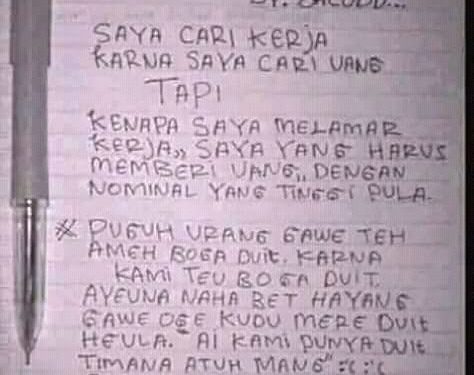 SAYA CARI KERJA
KARNA SAYA CARI UANG
TAPI
KENAPA SAYA MELAMAR
KERJA,, SAYA YANG HARUS
MEMBERI UANG,, DENGAN
NOMINAL YANG TINGGI PULA.
※ PUGUH URANG GAWE TEH
AMEH BOGA DUIT. KARNA
KAMI TEU BOGA DUIT.
AYEUNA NAHA BET HAYANG
GAWE OGE KUDU MERE DUIT
HEULA. "AI KAMI PUNYA DUIT
TIMANA ATUH MANG" :'( :'(